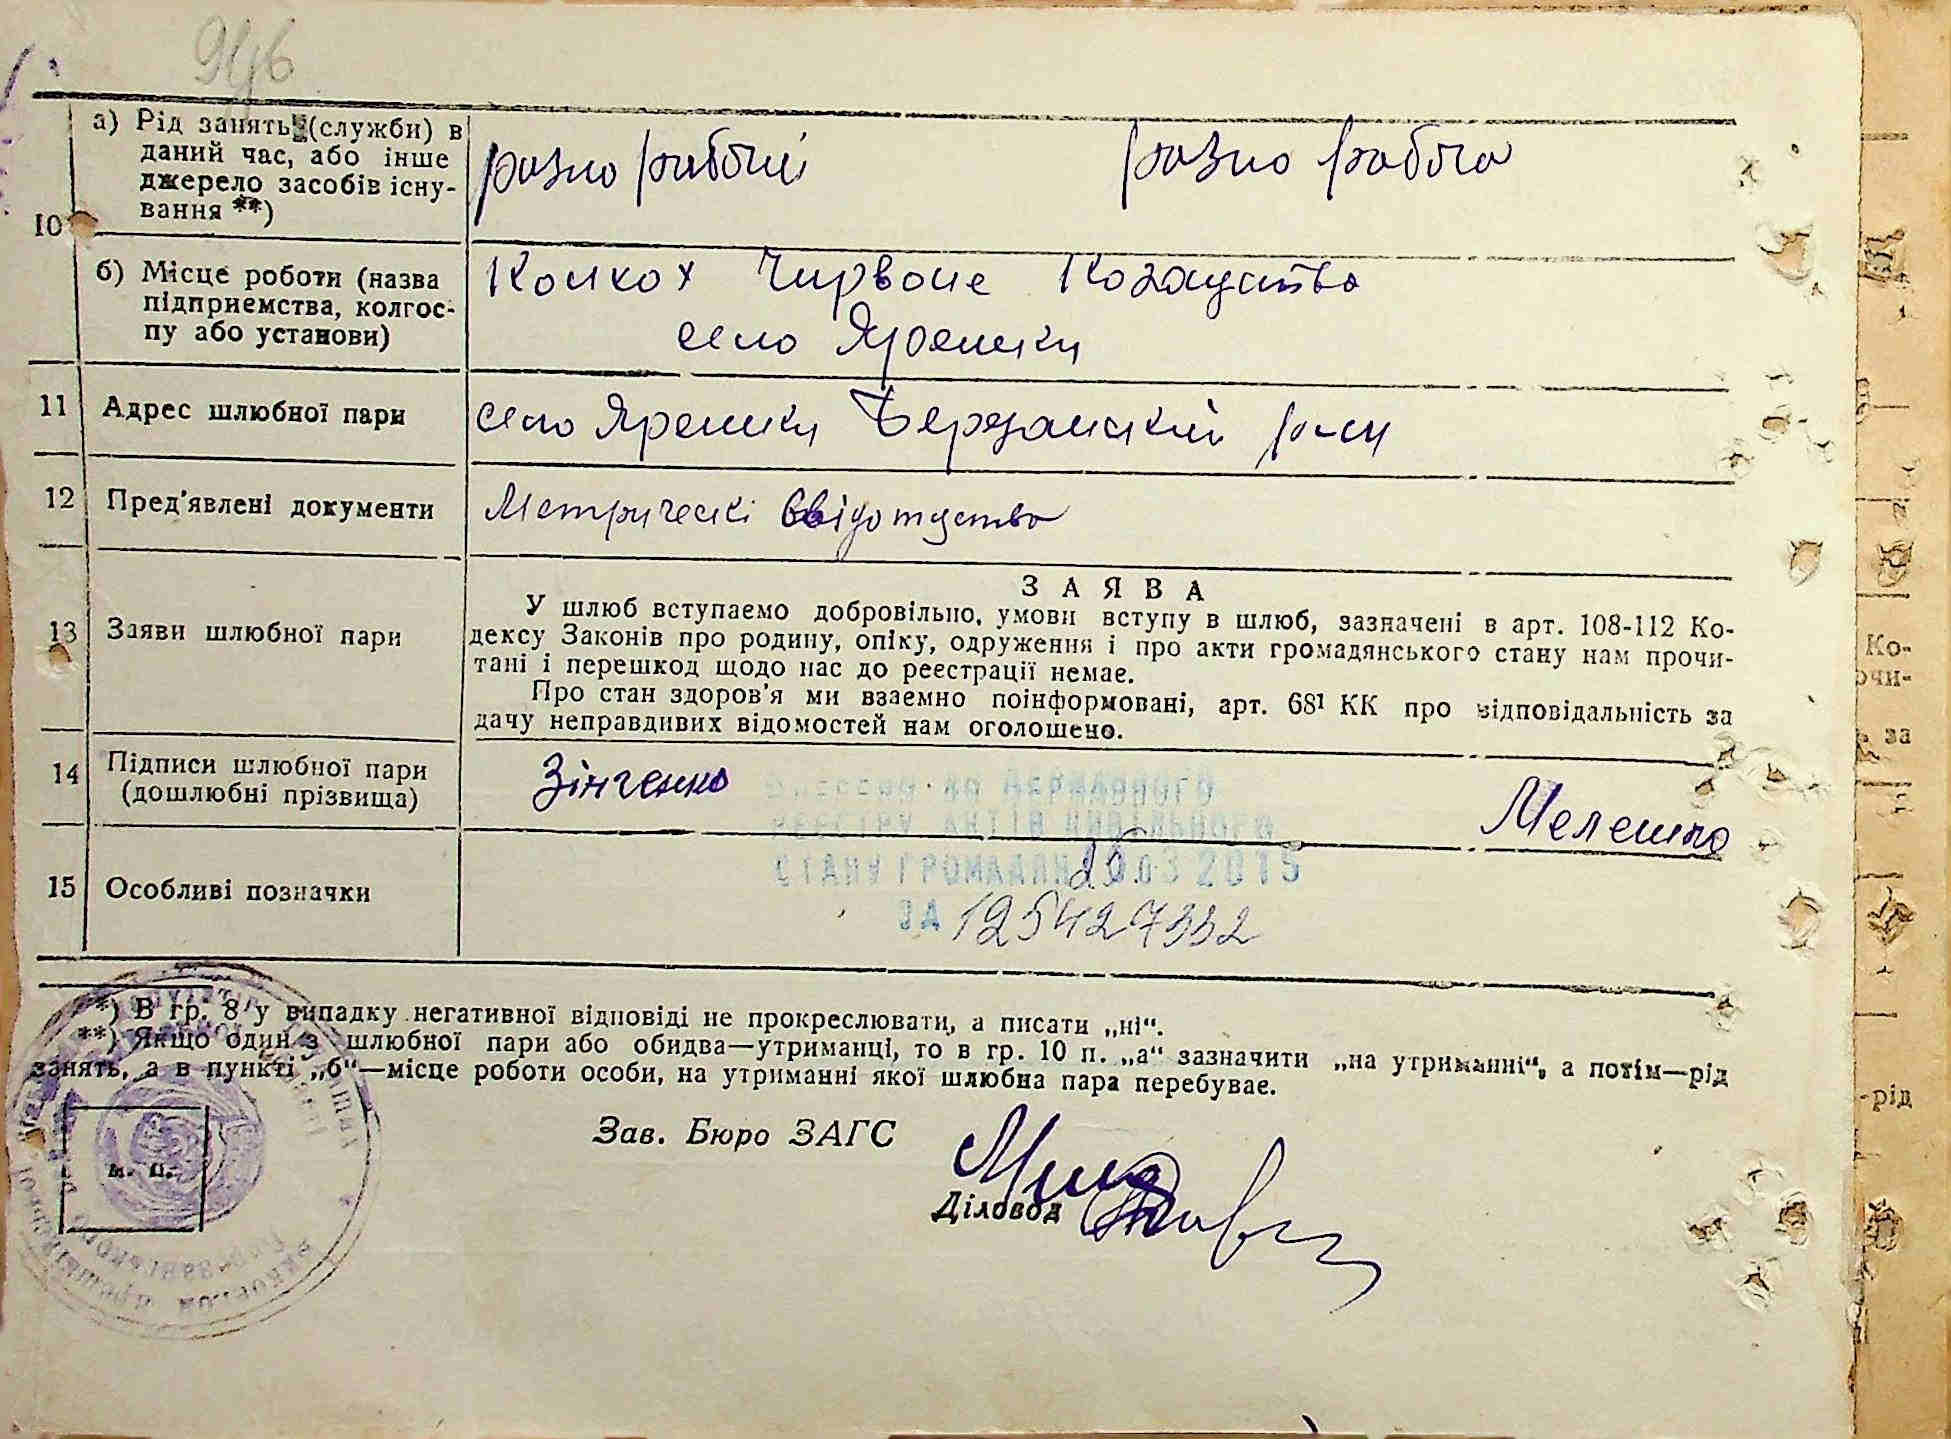 а) Рід занять (служби) в
даний час, або інше
джерело засобів існу-
вання **)
разно рабочий разно рабоча
10
б) Місце роботи (назва
підприємства, колгос-
пу або установи)
Колхох Чирвоне Козацтво
село Яреелики
11 Адрес шлюбної пари
село Ярешки Березанский р-ни
12 Пред'явлені документи
Метрическі свідотцтво
13 Заяви шлюбної пари
ЗАЯВА
У шлюб вступаємо добровільно, умови вступу в шлюб, зазначені в арт. 108-112 Ко-
дексу Законів про родину, опіку, одруження і про акти громадянського стану нам прочи-
тані і перешкод щодо нас до реєстрації немає.
Про стан здоров'я ми взаємно поінформовані, арт. 68¹ КК про відповідальність за
дачу неправдивих відомостей нам оголошено.
14 Підписи шлюбної пари
(дошлюбні прізвища)
Зінченко Мелешко
до Державного
реєстру актів цивільного
стану громадян 03 2015
ЗА 125427332
15 Особливі позначки
*) В гр. 8 у випадку негативної відповіді не прокреслювати, а писати „ні“.
**) Якщо один з шлюбної пари або обидва—утриманці, то в гр. 10 п. „а“ зазначити „на утриманні“, а потім—рід
занять, а в пункті „б“—місце роботи особи, на утриманні якої шлюбна пара перебуває.
Зав. Бюро ЗАГС
Діловод
м. п.
Ко-
очи-
за
-рід